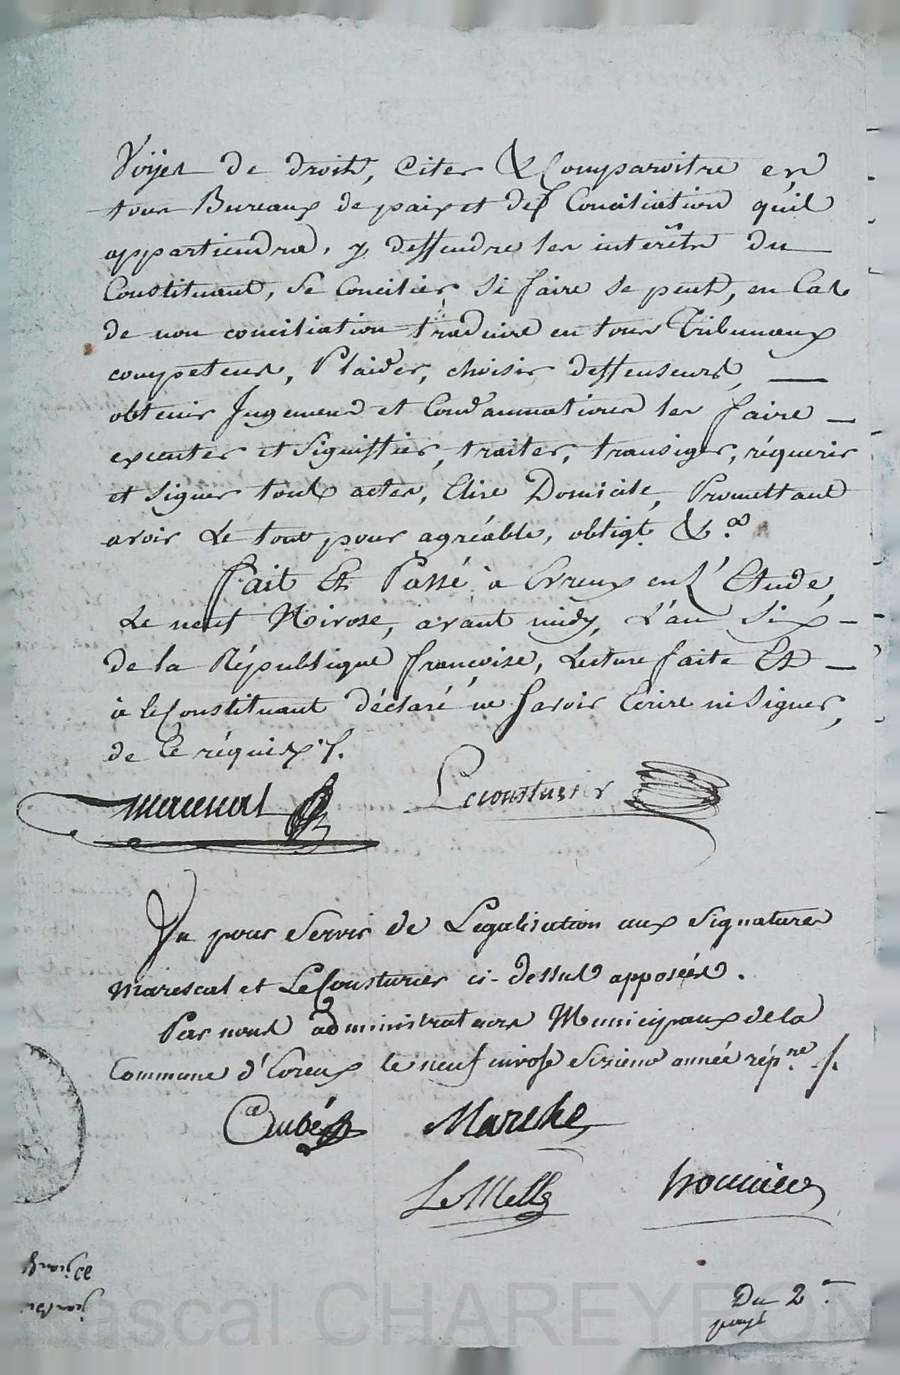 Voyes de droit, citer & Comparoitre en
tous Bureaux de paix et de Conciliation qu'il
appartiendra, y deffendre les intérêts du
Constituant, Se Concilier Si faire se peut, en Cas
de non conciliation traduire en tous Tribunaux
competens, Plaider, choisir deffenseurs,
obtenir Jugemens et Condamnations les faire
executer et Signiffier, traiter, transiger, réquerir
et signer tous actes, Elire Domicile, Promettant
avoir Le tout pour agréable, obligt &.a
Fait Et Passé à Evreux en L'Etude,
Le neuf Nivose, avant midy, L'an Six
de la République francoise, Lecture faite Et
à le Constituant déclaré ne Savoir Ecrire ni Signer,
de ce réquis /.
marescal Lecousturier
Vu pour Servir de Légalisation aux Signatures
Marescal et LeCousturier ci-dessus apposées.
Par nous administrateurs Municipaux de la
Commune d'Evreux le neuf nivose Sixieme année rép.ne /.
Aubé
Le Mell
Du 2
Pascal CHAREYRON